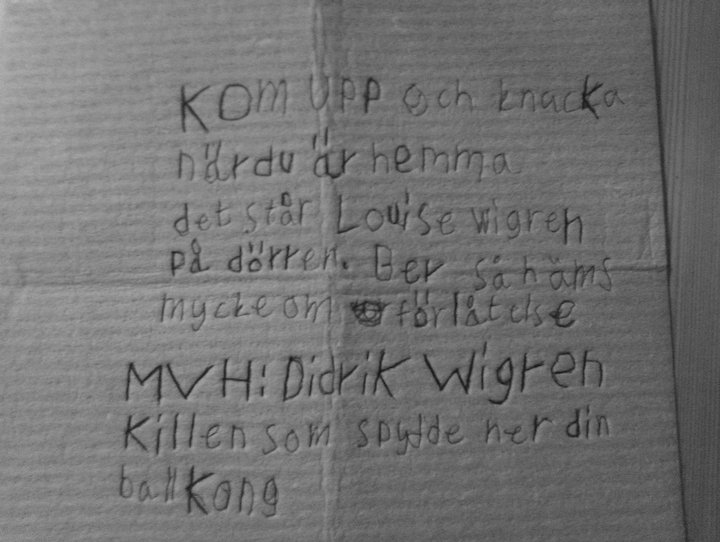 KOM UPP och knacka
när du är hemma
det står Louise wigren
på dörren. Ber så häms
mycke om förlåtelse
MVH: Didrik Wigren
Killen som spydde ner din
ballKong